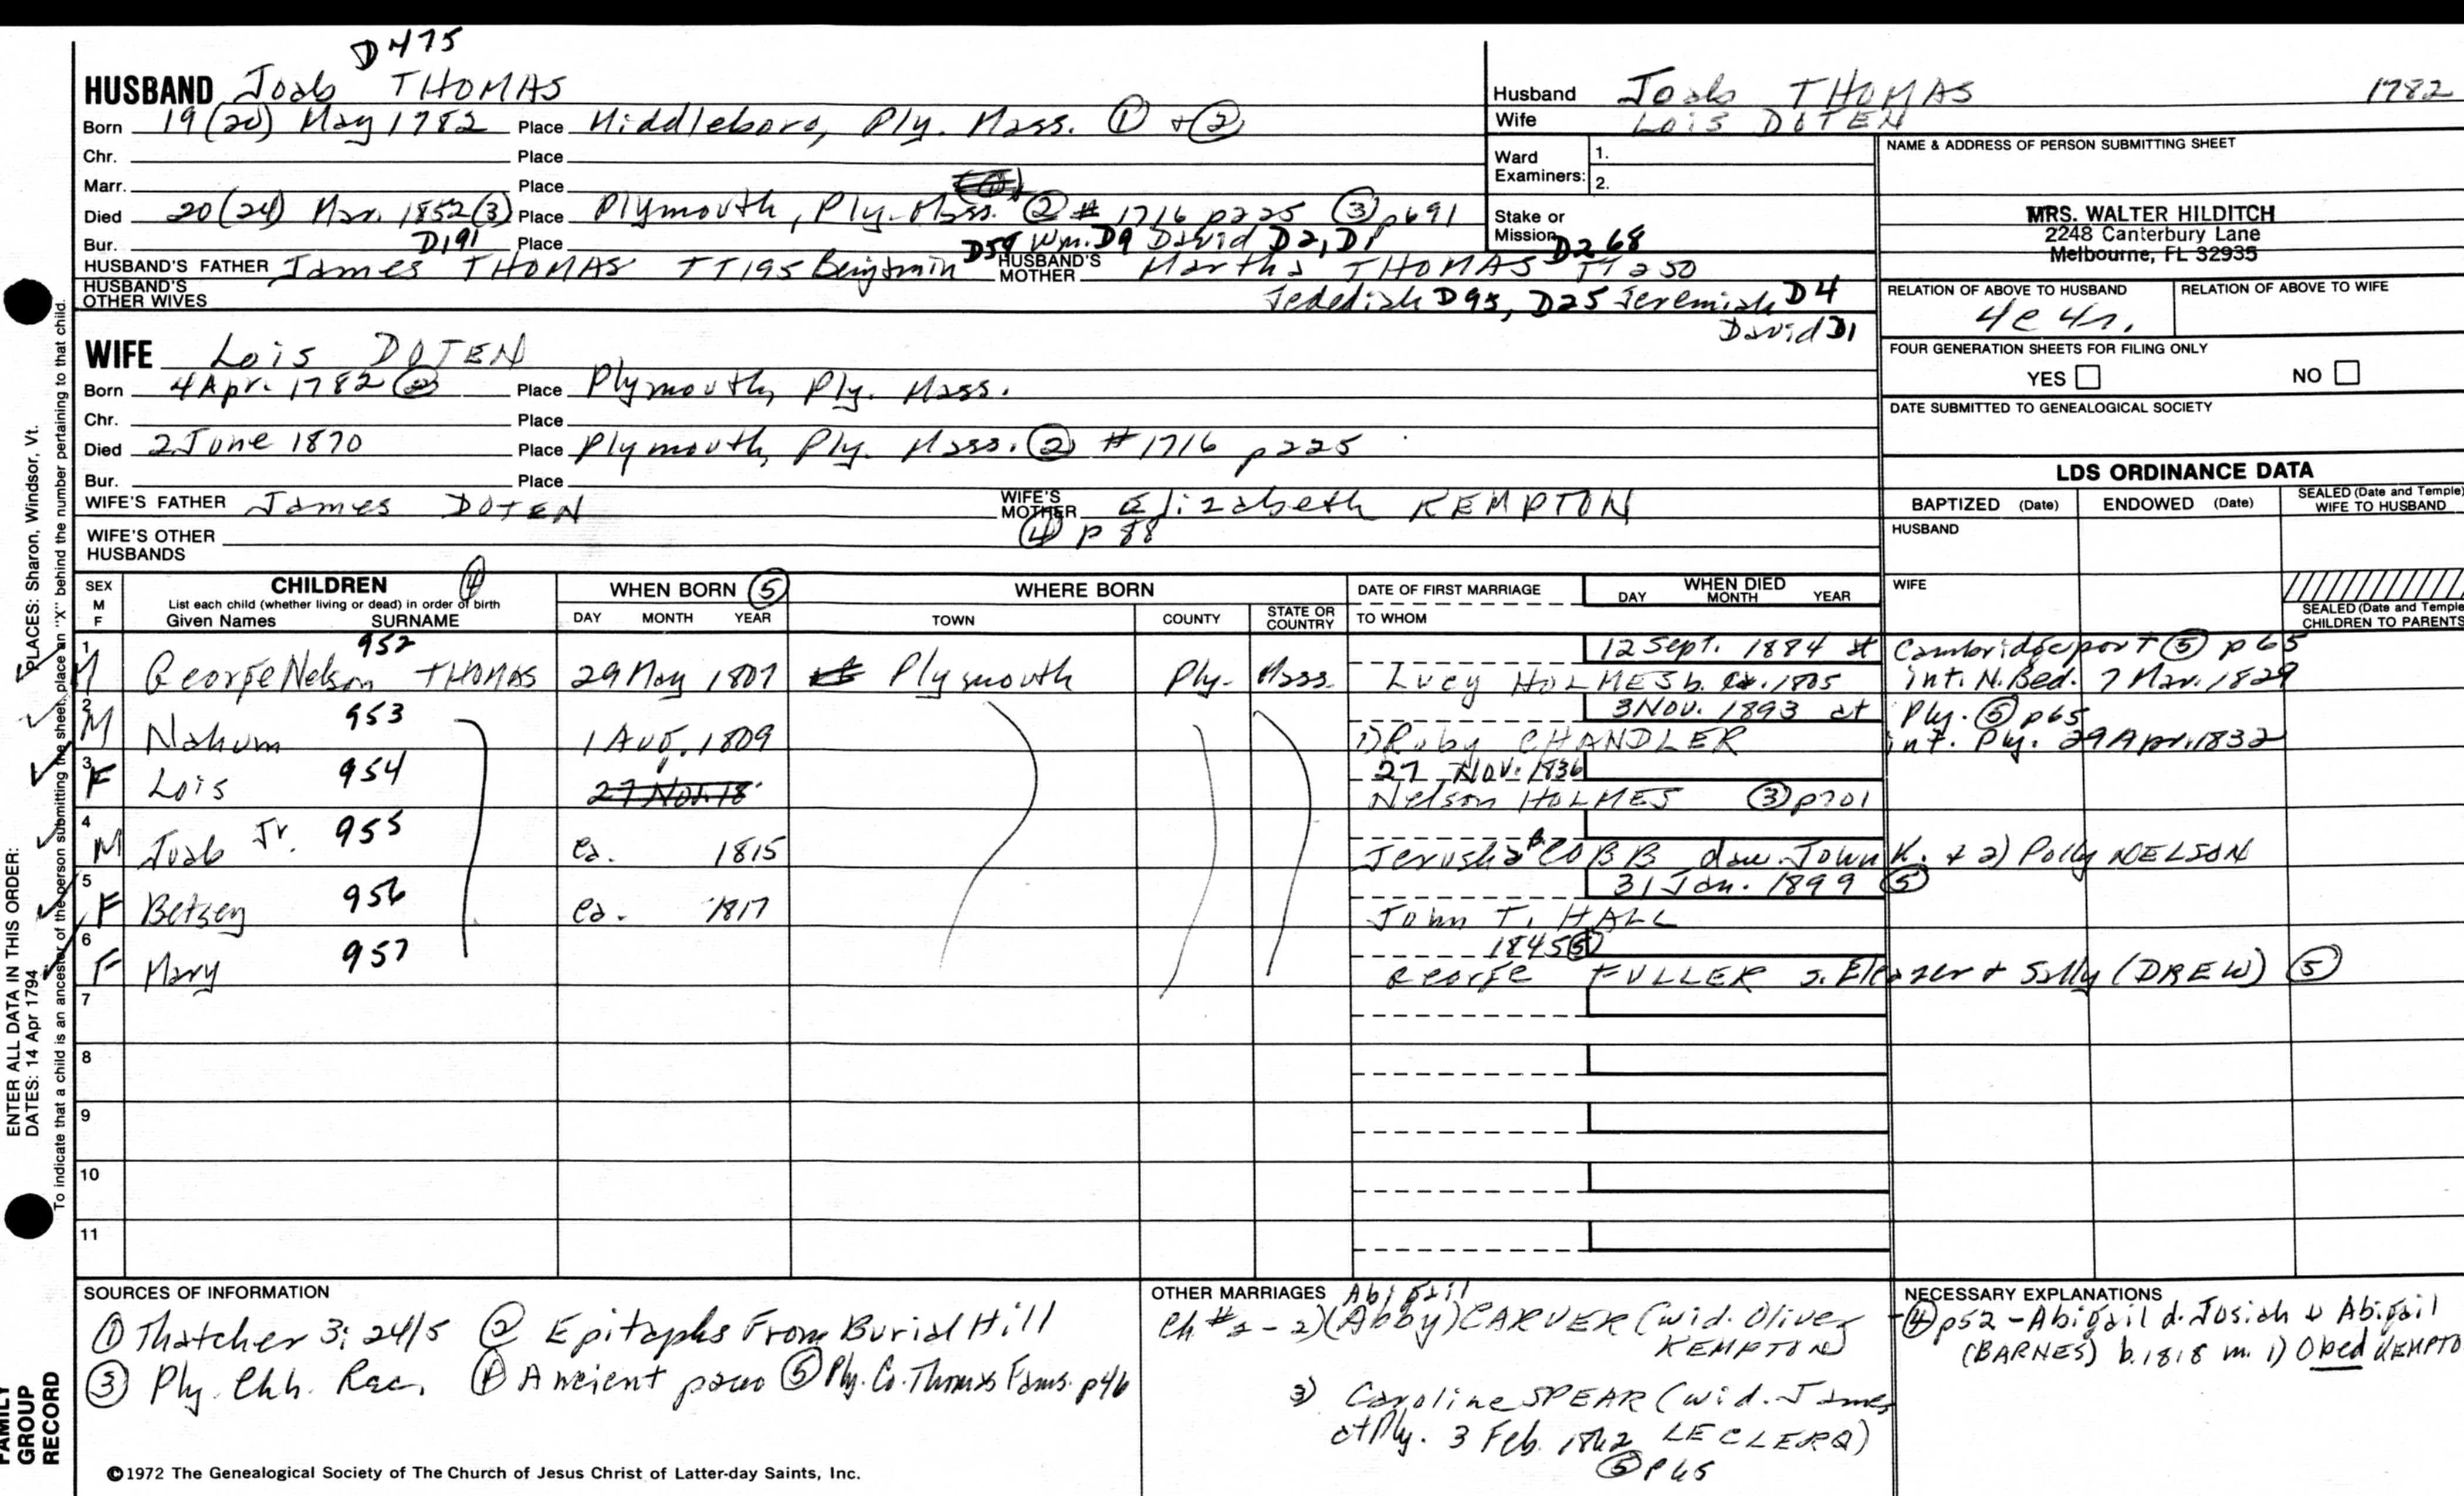 D475
HUSBAND Joab THOMAS
Born 19(20) May 1782 Place Middleboro, Ply. Mass. ① + ②
Chr. Place
Marr. Place
Died 20(24) Mar. 1852(3) Place Plymouth, Ply. Mass. ② # 1716 p225 ③ p691
Bur. Place
D191 D59 Wm. D9 David D2, D1 D268
HUSBAND'S FATHER James THOMAS TT195 Benjamin HUSBAND'S MOTHER Martha THOMAS TT250
HUSBAND'S OTHER WIVES
Jedediah D95, D25 Jeremiah D4
David D1
WIFE Lois DOTEN
Born 4 Apr. 1782 ② Place Plymouth, Ply. Mass.
Chr. Place
Died 2 June 1870 Place Plymouth, Ply. Mass. ② #1716 p225
Bur. Place
WIFE'S FATHER James DOTEN WIFE'S MOTHER Elizabeth KEMPTON
④ p 88
WIFE'S OTHER HUSBANDS
Husband Joab THOMAS 1782
Wife Lois DOTEN
Ward Examiners: 1.
2.
Stake or Mission
NAME & ADDRESS OF PERSON SUBMITTING SHEET
MRS. WALTER HILDITCH
2248 Canterbury Lane
Melbourne, FL 32935
RELATION OF ABOVE TO HUSBAND RELATION OF ABOVE TO WIFE
4c 4r.
FOUR GENERATION SHEETS FOR FILING ONLY
YES NO
DATE SUBMITTED TO GENEALOGICAL SOCIETY
LDS ORDINANCE DATA
BAPTIZED (Date) ENDOWED (Date) SEALED (Date and Temple) WIFE TO HUSBAND
HUSBAND
WIFE
SEALED (Date and Temple) CHILDREN TO PARENTS
SEX M F CHILDREN ④ WHEN BORN ⑤ WHERE BORN DATE OF FIRST MARRIAGE WHEN DIED
List each child (whether living or dead) in order of birth
Given Names SURNAME DAY MONTH YEAR TOWN COUNTY STATE OR COUNTRY TO WHOM DAY MONTH YEAR
952 12 Sept. 1884 at Cambridgeport ⑤ p65
1 M George Nelson THOMAS 29 May 1807 Plymouth Ply. Mass. Lucy HOLMES b. ca. 1805 int. N. Bed. 7 Mar. 1829
953 3 Nov. 1893 at Ply. ⑤ p65
2 M Nahum 1 Aug. 1809 1) Ruby CHANDLER int. Ply. 29 Apr. 1832
954 27 Nov. 1836
3 F Lois 27 Nov. 18 Nelson HOLMES ③ p701
4 M Joab Jr. 955 ca. 1815 Jerusha B. COBB dau. John K. + 2) Polly NELSON
31 Jan. 1899 ⑤
5 F Betsey 956 ca. 1817 John T. HALL
1845 ⑤
6 F Mary 957 George FULLER s. Eleazer + Sally (DREW) ⑤
7
8
9
10
11
SOURCES OF INFORMATION
① Thatcher 3: 24/5 ② Epitaphs From Burial Hill
③ Ply. Chh. Rec. ④ Ancient ⑤ Ply. Co. Thomas Fams. p46
OTHER MARRIAGES Abigail
Ch #2 - 2) (Abby) CARVER (wid. Oliver
KEMPTON)
3) Caroline SPEAR (wid. James
at Ply. 3 Feb. 1862 LECLERQ)
⑤ p65
NECESSARY EXPLANATIONS
④ p52 - Abigail d. Josiah & Abigail
(BARNES) b. 1818 m. 1) Obed KEMPTO
©1972 The Genealogical Society of The Church of Jesus Christ of Latter-day Saints, Inc.
ENTER ALL DATA IN THIS ORDER:
DATES: 14 Apr 1794
PLACES: Sharon, Windsor, Vt.
To indicate that a child is an ancestor of the person submitting the sheet, place an "X" behind the number pertaining to that child.
FAMILY GROUP RECORD